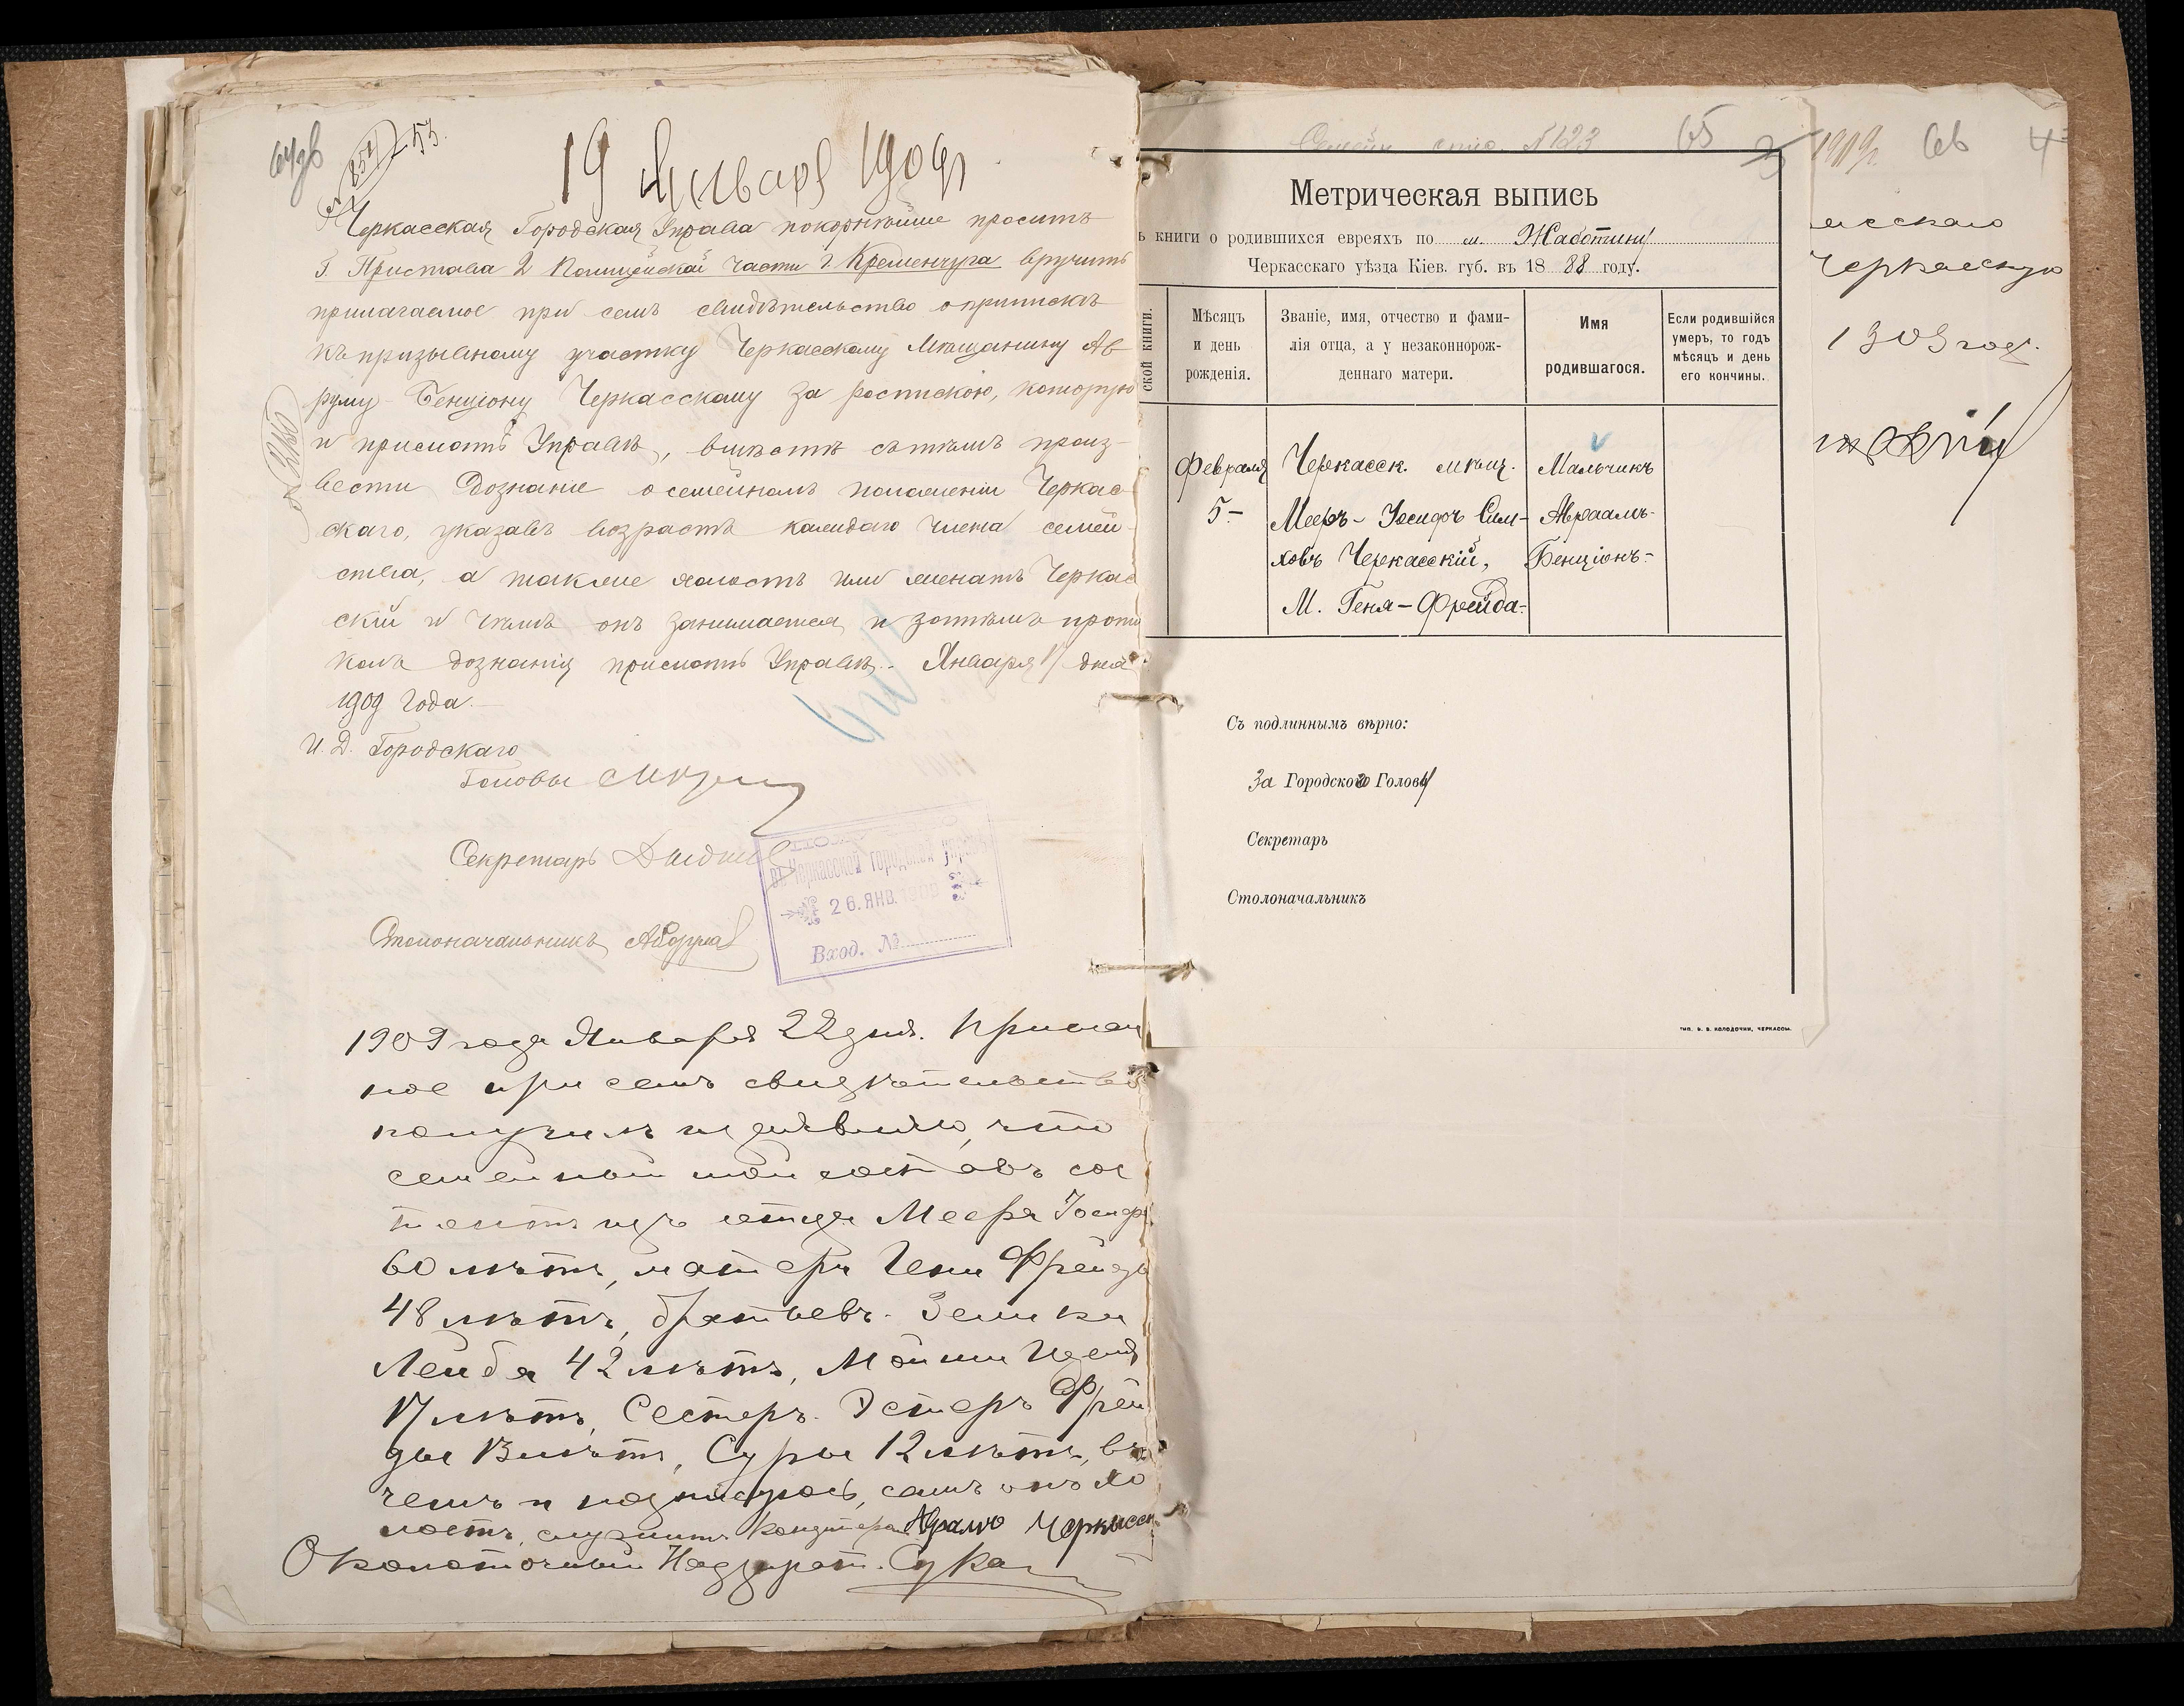 64 об
53.
19 Января 1909 г.
Черкасская Городская Управа покорнѣйше проситъ
Г. Пристава 2 Полицейской части г. Кременчуга вручить
прилагаемое при семъ свидѣтельство о припискѣ
къ призывному участку Черкасскому Мѣщанину Ав
руму-Бенціону Черкасскому за роспискою, которую
и прислать Управѣ, вмѣстѣ съ тѣмъ произ-
вести дознаніе о семейномъ положеніи Черкас
скаго, указавъ возрастъ каждаго члена семей-
ства, а также холостъ или женатъ Черкас
скій и чѣмъ онъ занимается и затѣмъ прото
колъ дознанія прислать Управѣ. Января 17 дня
1909 года.
И. Д. Городскаго
Головы
Секретарь
въ Черкасской Городской Управѣ
26. ЯНВ. 1909
Вход. №
Столоначальникъ
1909 года Января 22 дня. Прилагаем
ное при семъ свидѣтельство
получилъ и заявляю, что
семейный мой составъ сос
тоитъ изъ отца Меера Іосифа
60 лѣтъ, матери Гени Фрейды
48 лѣтъ, братьевъ. Зелика
Лейба 42 лѣтъ, Мойши
17 лѣтъ, Сестеръ. Эстеръ Фрей
ды 13 лѣтъ, Суры 12 лѣтъ, въ
чемъ и подписуюсь, самъ онъ хо
лостъ, служитъ Аврамъ Черкасск
Околоточный Надзират.
Семейн. спис. № 123
65
Метрическая выпись
ъ книги о родившихся евреяхъ по м. Жаботину
Черкасскаго уѣзда Кіев. губ. въ 1888 году.
ской книги.
Мѣсяцъ
и день
рожденія.
Званіе, имя, отчество и фами-
лія отца, а у незаконнорож-
деннаго матери.
Имя
родившагося.
Если родившійся
умеръ, то годъ
мѣсяцъ и день
его кончины.
Февраля
5-
Черкасск. мѣщ.
Мееръ-Іосифъ Сим-
ховъ Черкасскій,
М. Геня-Фрейда-
Мальчикъ
Авраамъ-
Бенціонъ-
Съ подлиннымъ вѣрно:
За Городского Голову
Секретарь
Столоначальникъ
ТИП. В. В. КОЛОДОЧКИ, ЧЕРКАССЫ.
1909 г.
66
4
асскаго
Черкасскую
1909 год.